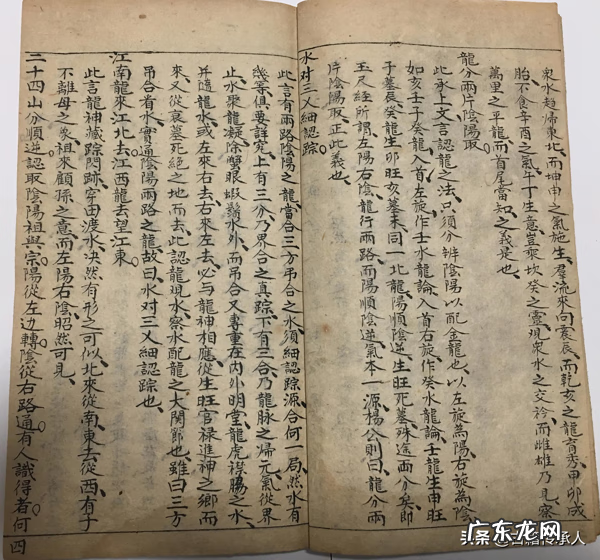 衆水趋帰東北而坤申之氣施生羣流來向震辰而乾亥之龍育秀甲卯成
胎不食辛酉之氣午丁生意豈專坎癸之靈現衆水之交衿而雌雄乃見察
萬里之平龍而首尾當知之義是也
龍分兩片陰陽取
此承上文言認龍之法只須分辨陰陽以配金龍也以左旋為陽右旋為陰
如亥壬子癸龍入首左旋作壬水龍論入首右旋作癸水龍論壬龍生申旺
子墓辰癸龍生卯旺亥墓未同一北龍陽順陰逆生旺死墓殊途両分矣即
玉尺經所謂左陽右陰龍行兩路而陽順陰逆氣本一源楊公則曰龍分兩
片陰陽取正此義也
水对三义細認踪
此言有兩路陰陽之龍當合三方吊合之水須細認踪源合何一局然水有
幾等俱要詳究上有三分乃界合之真踪下有三合乃龍脉之帰元氣從界
止水聚龍凝除蟹眼蝦鬚水外而吊合又專重在內外明堂龍虎襟腸之水
并隨龍水或左來右去右來左去必与龍神相應從生旺官禄進神之鄉而
來又從衰墓死絶之地而去此認龍現水察水配龍之大関節也雖曰三方
吊合看水實通陰陽兩路之龍故曰水对三义細認踪也
江南龍來江北去江西龍去望江東
此言龍神藏踪閃跡穿田渡水决然有形之可似北來從南東去從西有子
不離母之象祖來顧孫之意而左陽右陰昭然可見
二十四山分順逆認取陰陽祖與宗陽從左边轉陰從右路通有人識得者何四
头条@古籍传承人
广东龙网